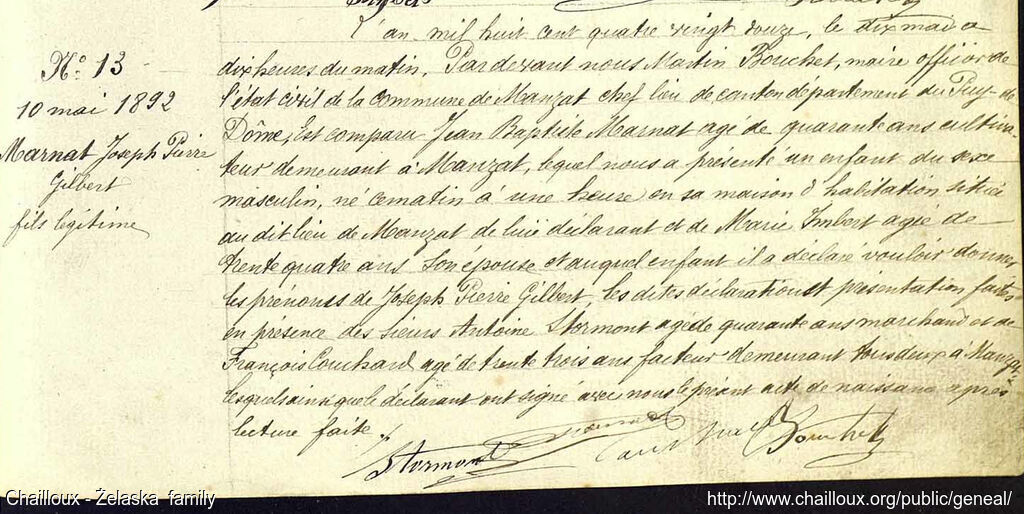 N° 13
10 mai 1892
Marnat Joseph Pierre
Gilbert
fils légitime
L'an mil huit cent quatre vingt douze, le dix mai a
dix heures du matin, Pardevant nous Martin Bouchet, maire officier de
l'état civil de la commune de Manzat chef lieu de canton département du Puy-de
Dôme, Est comparu Jean Baptiste Marnat agé de quarante ans cultiva-
teur demeurant à Manzat, lequel nous a présenté un enfant du sexe
masculin, né ce matin à une heure en sa maison d'habitation située
au dit lieu de Manzat de lui déclarant et de Marie Imbert agée de
trente quatre ans son épouse et auquel enfant il a déclaré vouloir donner
les prénoms de Joseph Pierre Gilbert, les dites déclaration et présentation faites
en présence des sieurs Antoine Stormont agé de quarante ans marchand et de
François Couchard agé de trente trois ans facteur demeurant tous deux à Manzat
lesquels ainsi que le déclarant ont signé avec nous le présent acte de naissance après
lecture faite.
Stormont Marnat Bouchet
Chailloux - Żelaska family
http://www.chailloux.org/public/geneal/